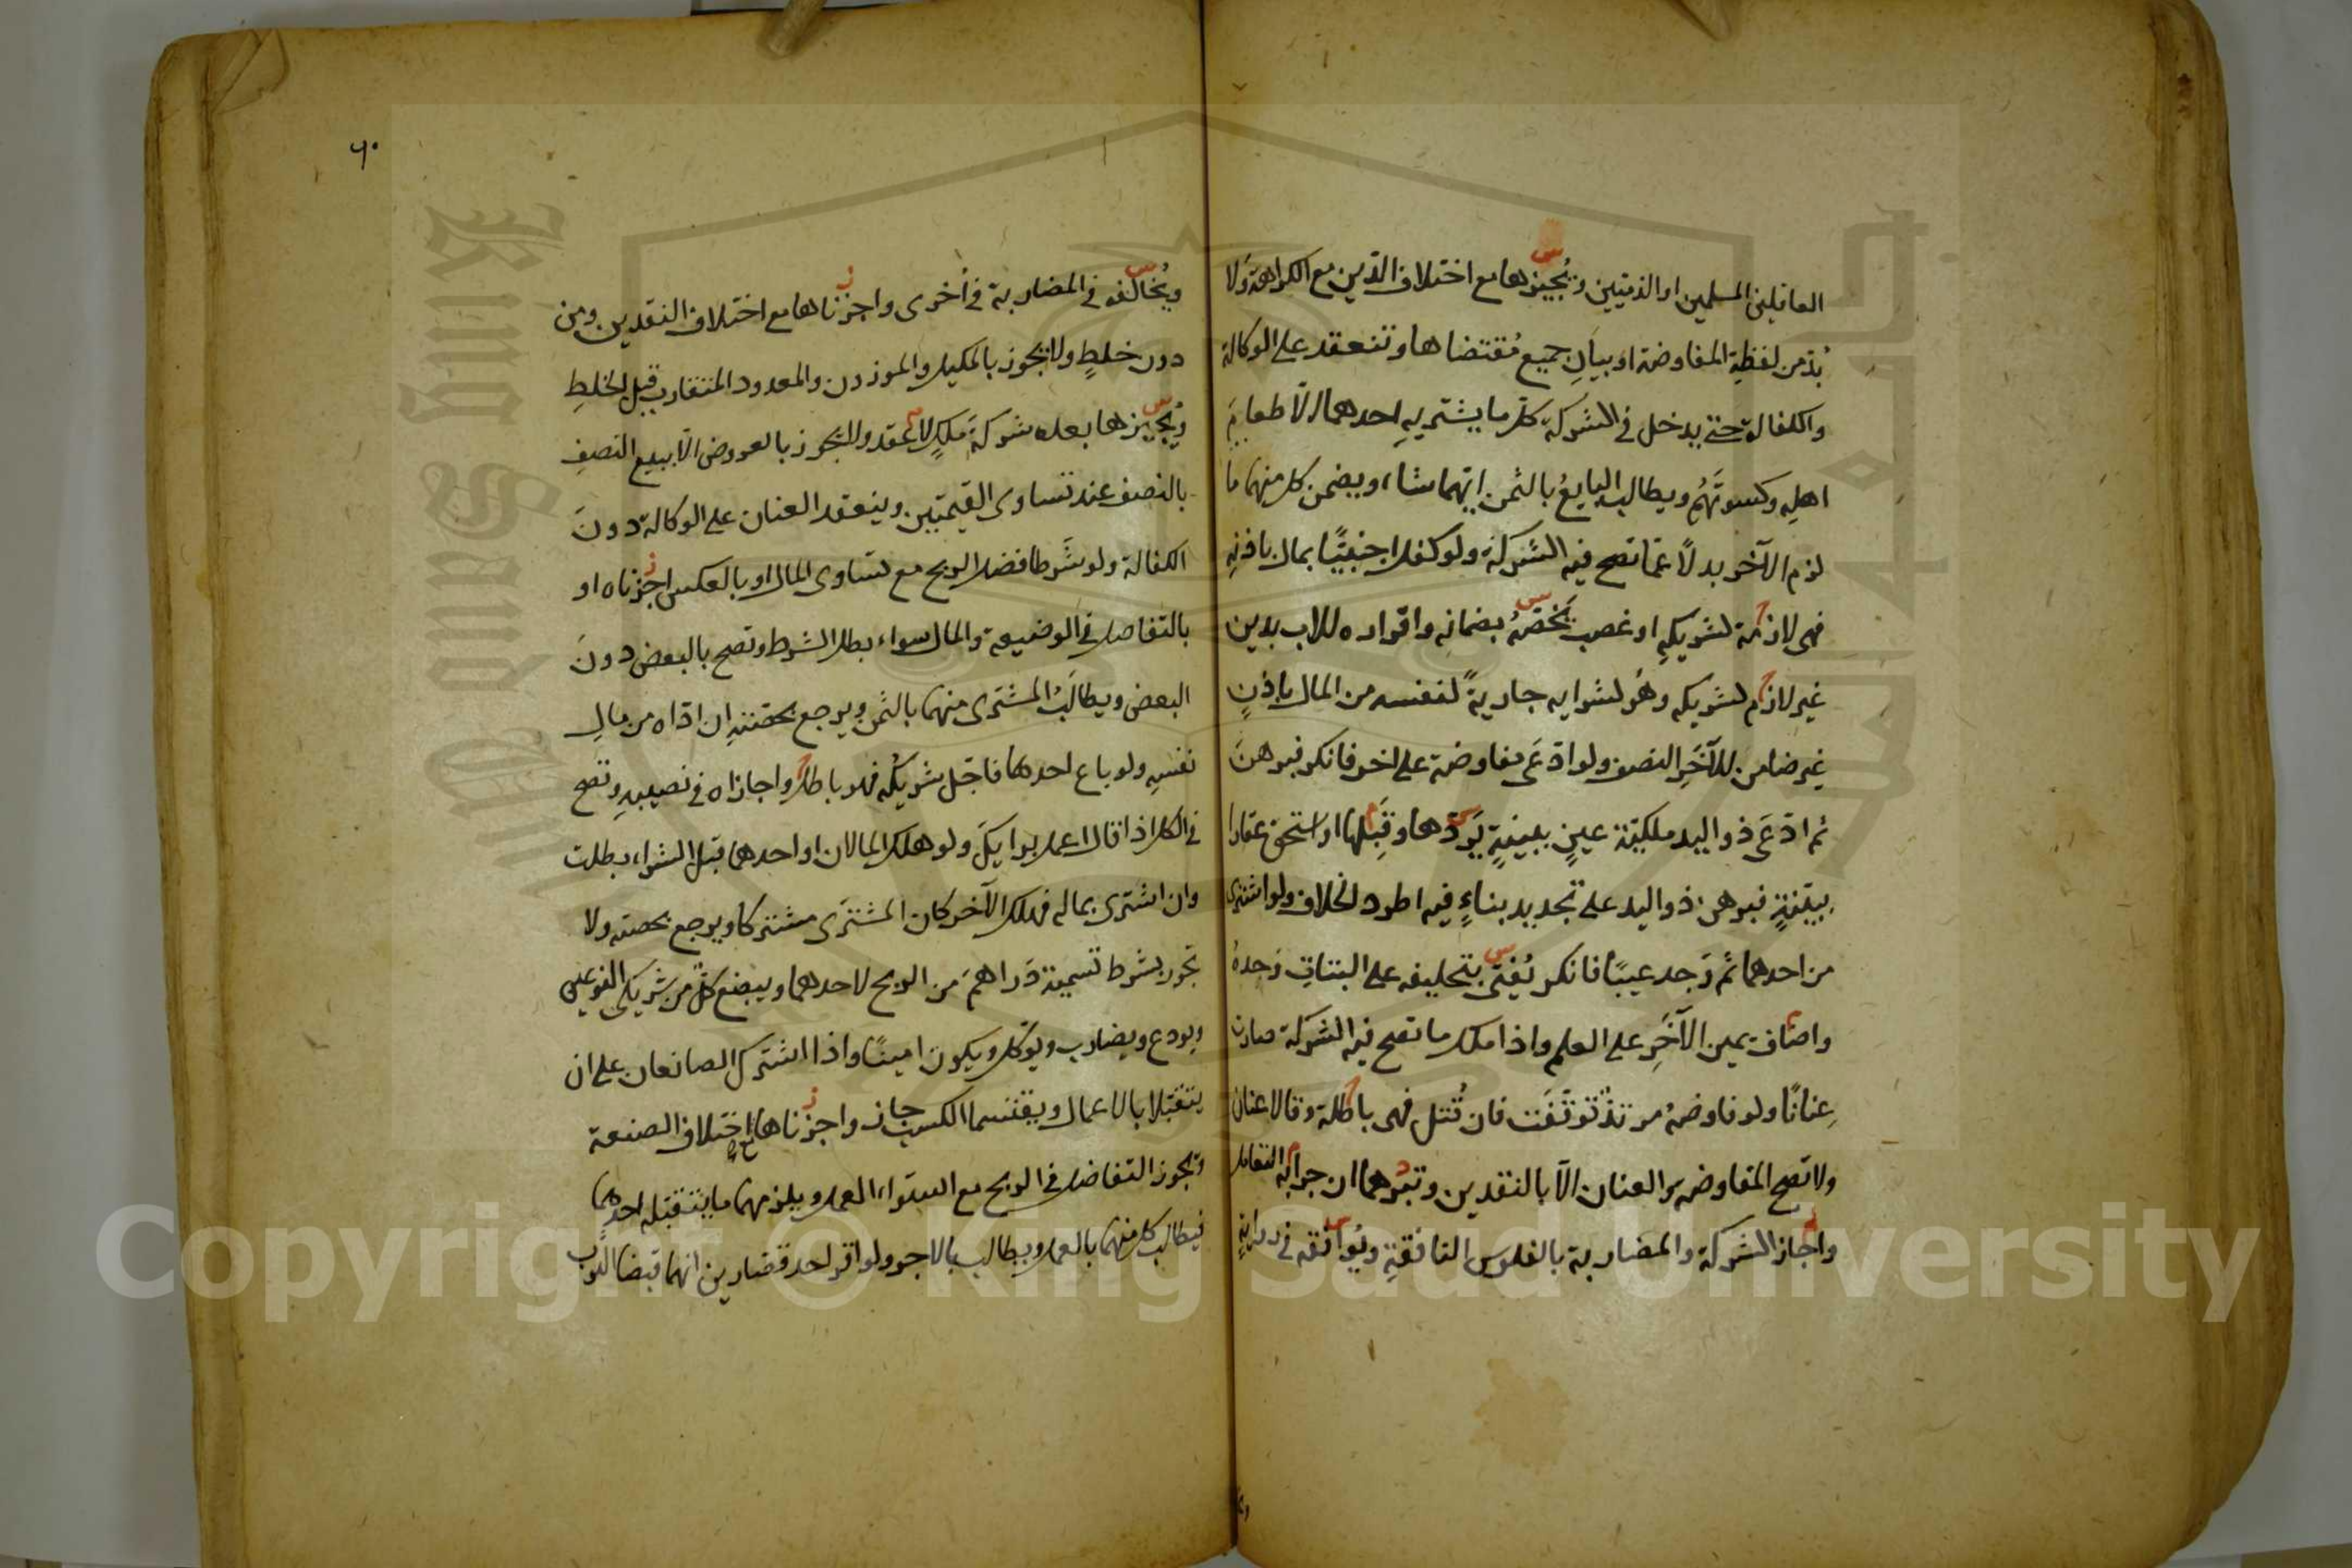 العاقلين المسلمين او الذميين ويُجيزها مع اختلاف الدين مع الكراهة ولا
بُدّ من لفظة المفاوضة او بيانِ جميع مُقتضاها وتنعقد على الوكالة
والكفالة حتى يدخل في الشركة كل ما يشتريهِ احدهما الّا طعامَ
اهلِه وكسوتَهُم ويطالب البايعُ بالثمن ايّهما شاء ويضمن كل منهما ما
لزم الآخر بدلاً عمّا تصح فيه الشركة ولو كفل اجنبيًّا بمال باذنِه
فهى لازمة لشريكهِ او غصب يَخصّهُ بضمانه واقراره للاب بدين
غير لازم لشريكه وهُو لشرايه جاريةً لنفسه من المال باذنٍ
غير ضامن للآخَرِ النصف ولو ادّعَى مفاوضة على اخر فانكر فبرهنَ
ثم ادّعَى ذو اليد ملكيّة عينٍ ببينةٍ يَردّها وقَبِلَها او استحق عقارا
ببيّنةٍ فبرهن ذو اليد على تجديد بناءٍ فيه اطرد الخلاف ولو اشترى
من احدهما ثم وَجد عيبًا فانكر يُفتى بتحليفه على البتاتِ وَحدهُ
واضاف يمين الآخَرِ على العلم واذا ملك ما تصح فيه الشركة صارت
عِنانًا ولو فاوضهُ مرتدٌّ تَوقَفَت فان قُتل فهى باطلة وقالا عنان
ولا تصح المفاوضه والعنان الّا بالنقدين وتبرهما ان جرا به التعامل
واجاز الشركة والمضاربة بالفلوس النافقةِ ويُوافقه فى روايةٍ
٦٠
ويُخالفه فى المضاربة فى أخرى واجزناها مع اختلاف النقدين ومن
دون خلطٍ ولا تجوز بالمكيل والموزون والمعدود المتقارب قبل الخلطِ
ويُجيزها بعده شركةَ مِلكٍ لا عقد ولا تجوز بالعروض الّا ببيع النصفِ
بالنصف عند تساوى القيمتين وينعقد العنان على الوكالة دونَ
الكفالة ولو شَرطا فضل الربح مع تساوى المال او بالعكس اجزناه او
بالتفاضل فى الوضيعة والمال سواء بطل الشرط وتصح بالبعض دونَ
البعض ويطالَبُ المشترى منهما بالثمن ويرجع بحصّتهِ ان ادّاه من مالِ
نفسِه ولو باع احدهما فاجّل شريكُه فهو باطل واجازاه فى نصيبهِ وتصح
فى الكل اذا قال اعمل برايكَ ولو هلك المالان او احدهما قبل الشراء بطلت
وان اشترى بماله فهلك الآخر كان المشترَى مشتركا ويرجع بحصته ولا
تجوز بشرط تسمية دَراهمَ من الربح لاحدهما ويبضع كلٌّ من شريكى النوعين
ويودع ويضارب ويوكّل ويكون امينًا واذا اشترك الصانعان على ان
يتقبّلا بالاعمال ويقتسما الكسب جاز واجزناها مع اختلاف الصنعة
وتجوز التفاضل فى الربح مع استواء العمل ويلزمهما ما يتقبّله احدهما
فيطالب كل منهما بالعمل ويطالب بالاجر ولو اقر احد قصّارين انهما قبضا الثوب